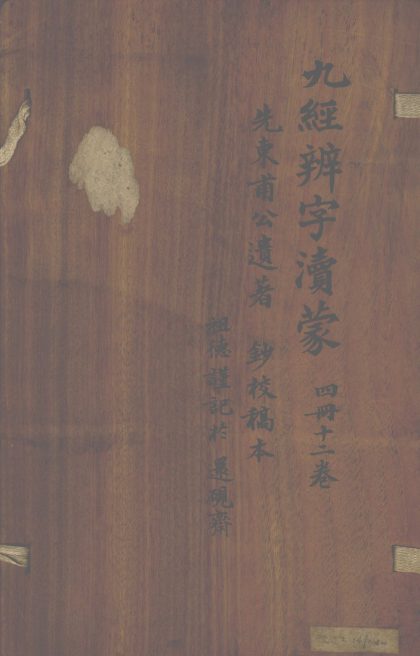 九經辨字瀆蒙 四冊十二卷
先東甫公遺著 鈔校稿本
祖德謹記於 硯齋